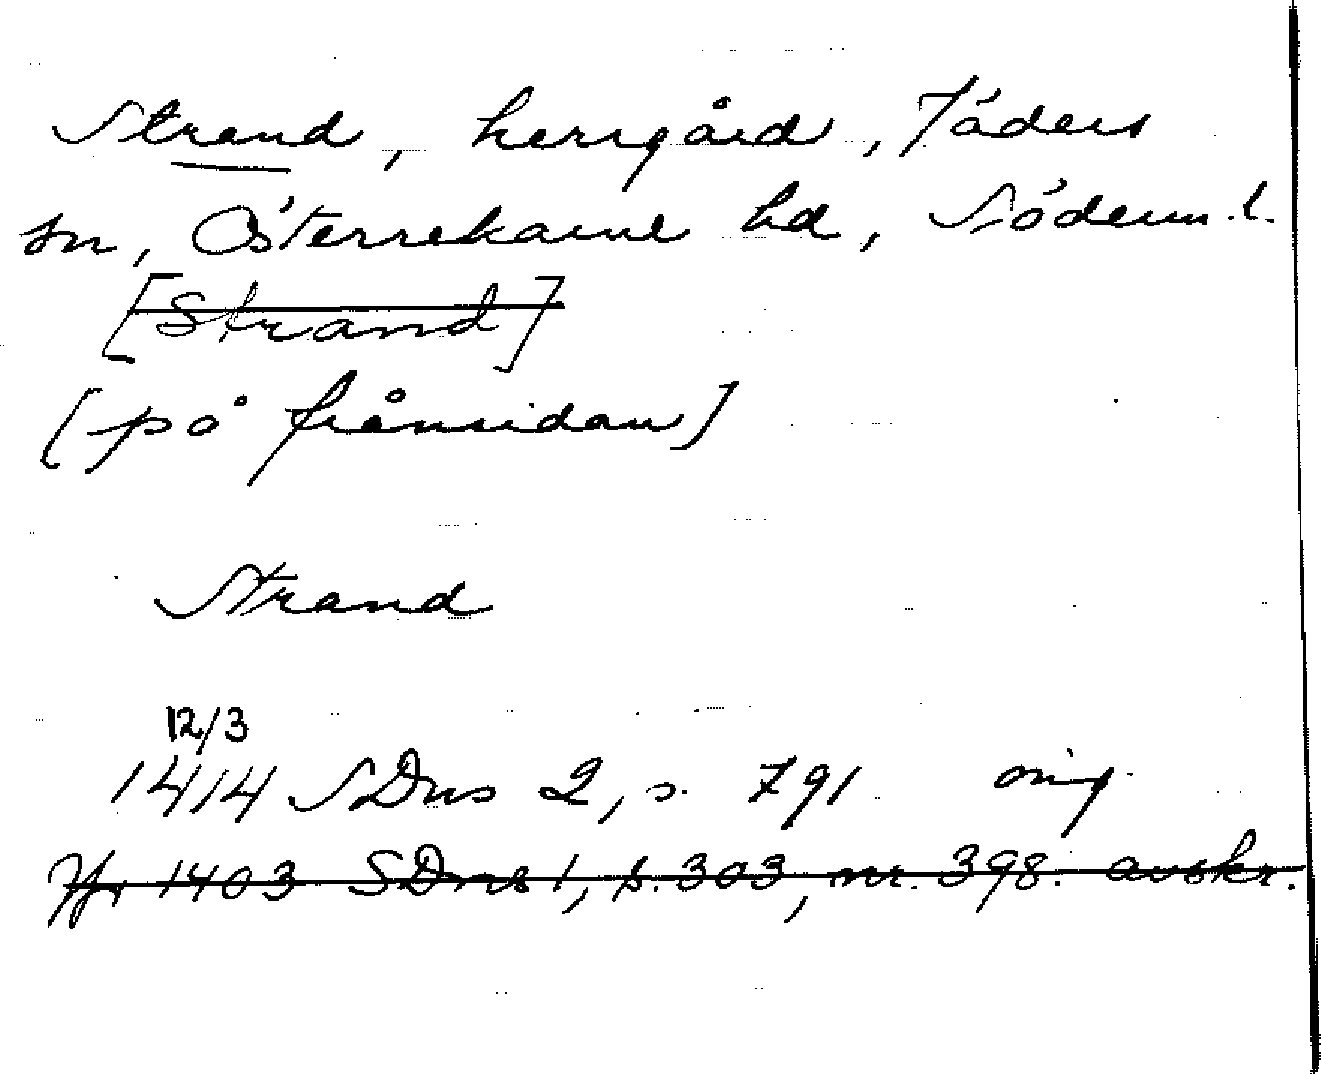 Strand, herrgård, Jäders
sn, Österrekarne hd, Söderm.l.
[Strand]
[på framsidan]
Strand
12/3
1414 SDns 2, s. 791 orig.
Jfr 1403 SDns 1, s. 303, nr. 398. avskr.